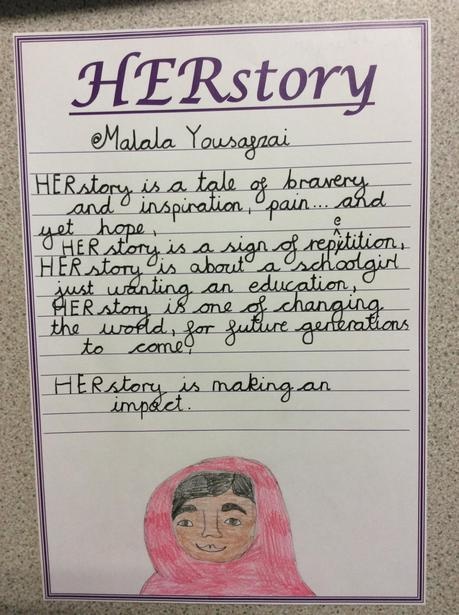 HERstory
@Malala Yousafzai
HERstory is a tale of bravery
and inspiration, pain... and
yet hope,
HERstory is a sign of repetition,
HERstory is about a schoolgirl
just wanting an education,
HERstory is one of changing
the world, for future generations
to come,
HERstory is making an
impact.